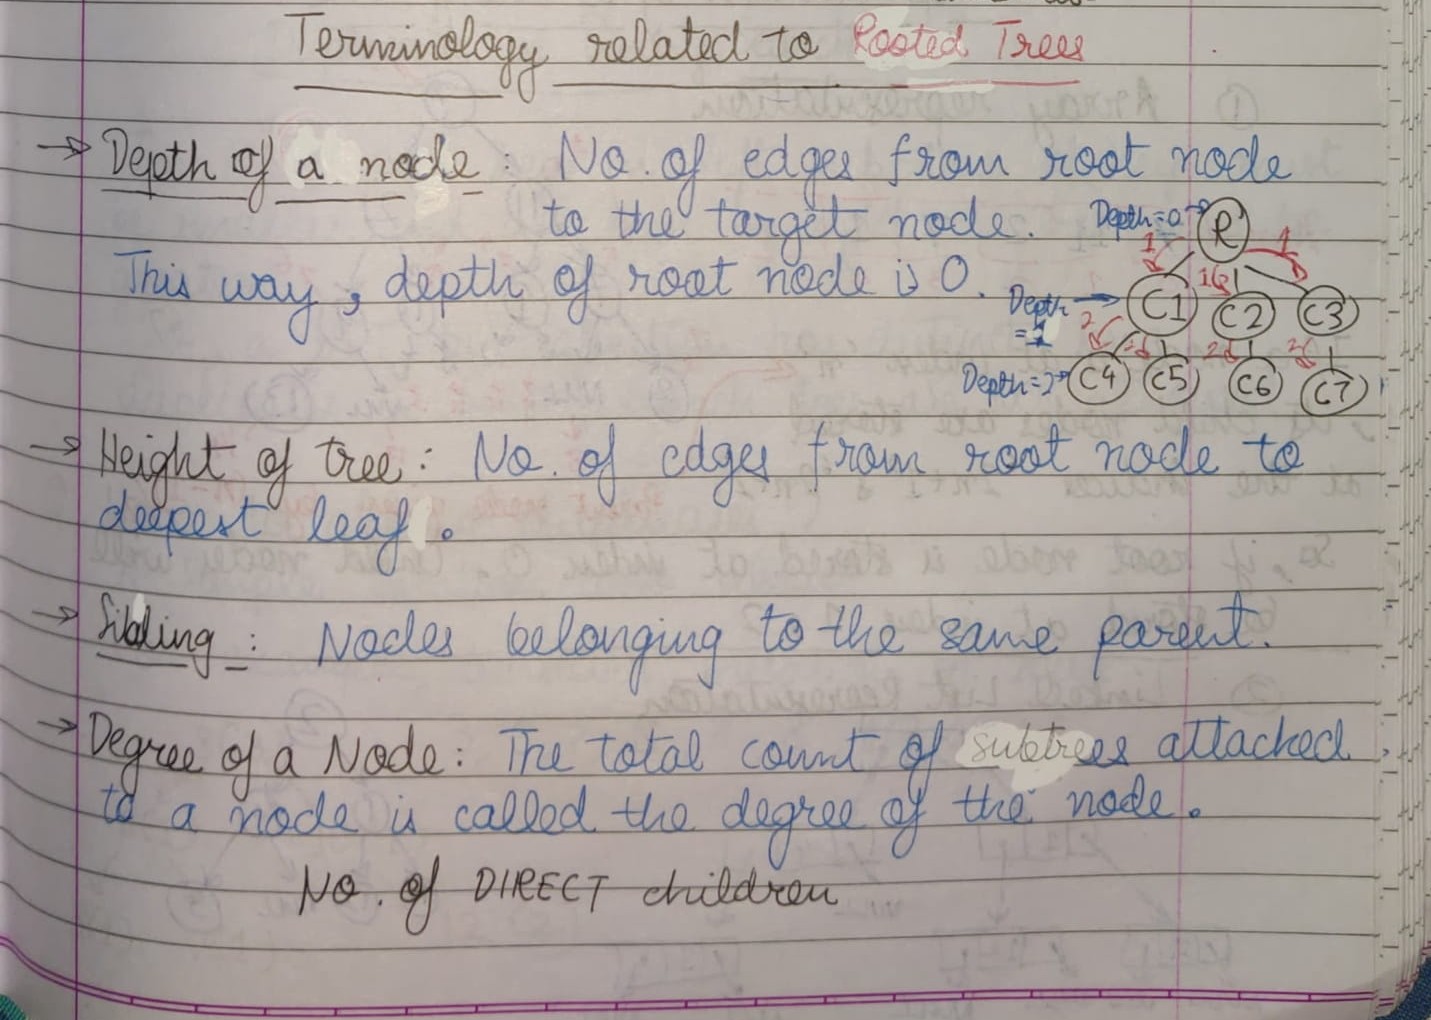 Terminology related to Rooted Trees
→ Depth of a node : No. of edges from root node
to the target node.
This way, depth of root node is 0.
Depth=0 → R
1 1 1
Depth = 1 → C1 C2 C3
2 2 2 2
Depth=2 → C4 C5 C6 C7
→ Height of tree : No. of edges from root node to
deepest leaf .
→ Sibling : Nodes belonging to the same parent.
→ Degree of a Node : The total count of subtrees attached
to a node is called the degree of the node.
No. of DIRECT children